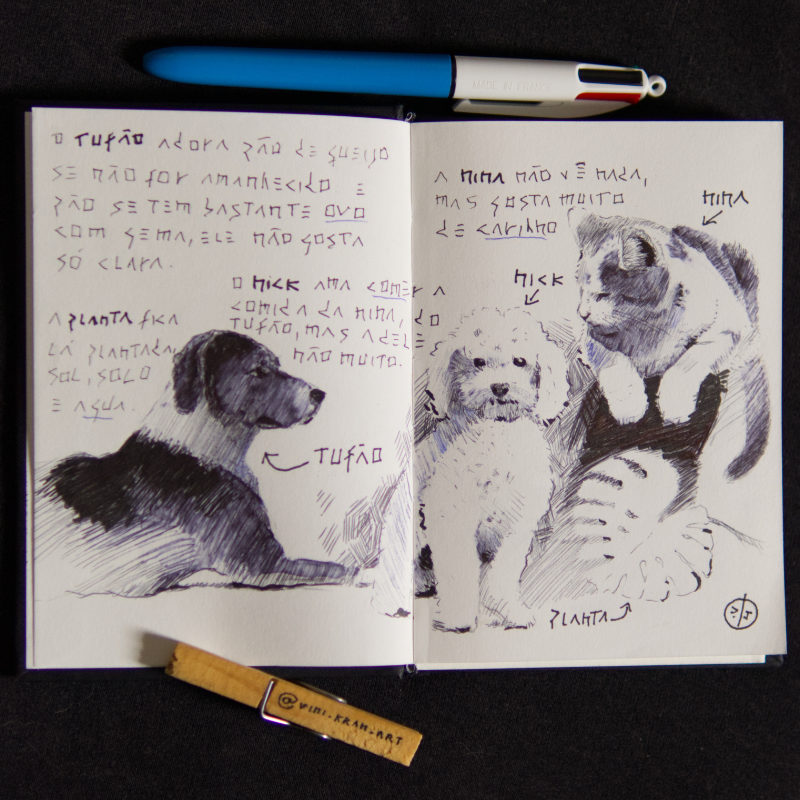 MADE IN FRANCE
O TUFÃO ADORA PÃO DE QUEIJO
SE NÃO FOR AMANHECIDO. E
PÃO SE TEM BASTANTE OVO
COM GEMA, ELE NÃO GOSTA
SÓ CLARA.
O MICK AMA COMER A
COMIDA DA NINA, DO
TUFÃO, MAS A DELE
NÃO MUITO.
A PLANTA FICA
LÁ PLANTADA,
SOL, SOLO
E AGUA.
TUFÃO
A NINA NÃO VÊ NADA,
MAS GOSTA MUITO
DE CARINHO
NINA
MICK
PLANTA
@VINI_KRAN_ART